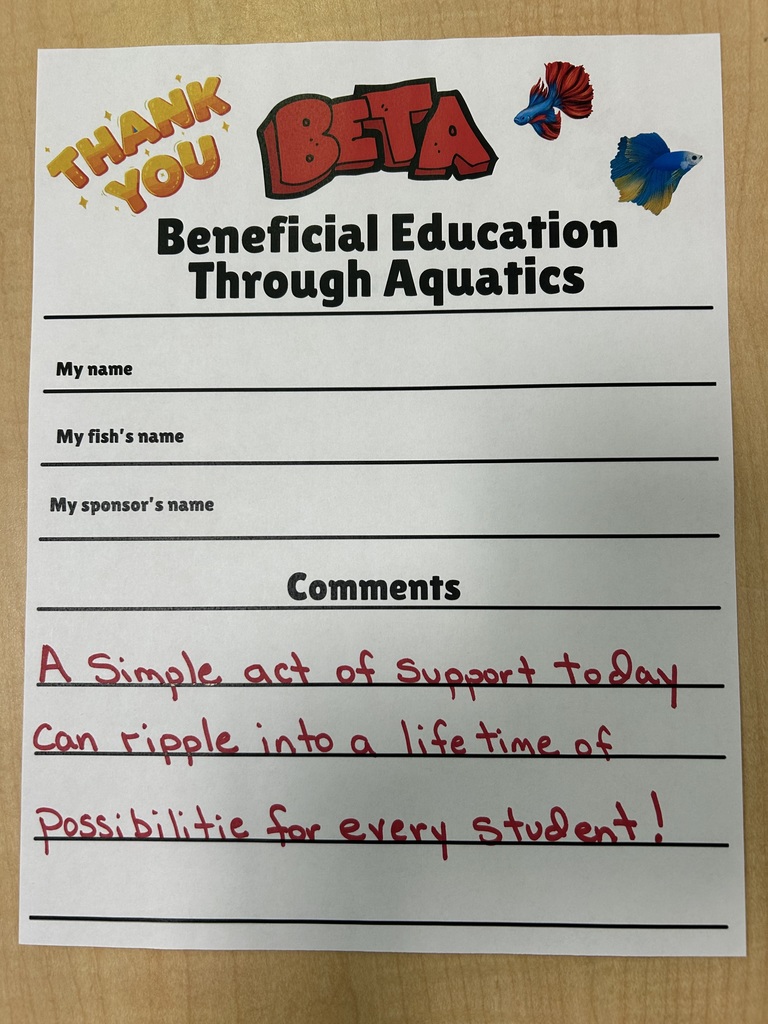 THANK YOU
BETA
Beneficial Education
Through Aquatics
My name
My fish's name
My sponsor's name
Comments
A Simple act of support today
Can ripple into a life time of
possibilitie for every student!